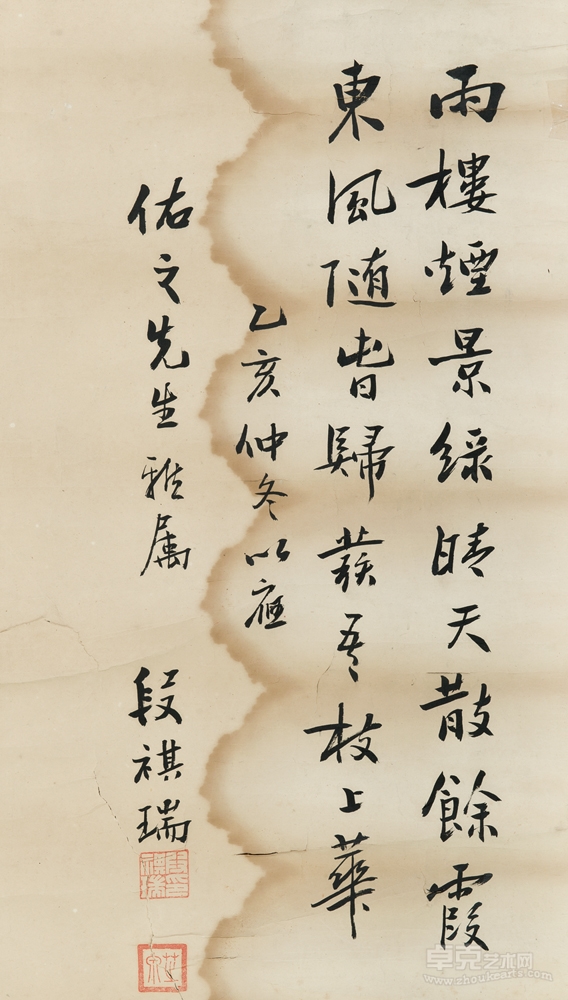 雨樓煙景綠晴天散餘霞
東風随旾歸發吾枝上華
乙亥仲冬以應
佑之先生雅属 段祺瑞
芝泉
卓克艺术网
www.zhuokearts.com